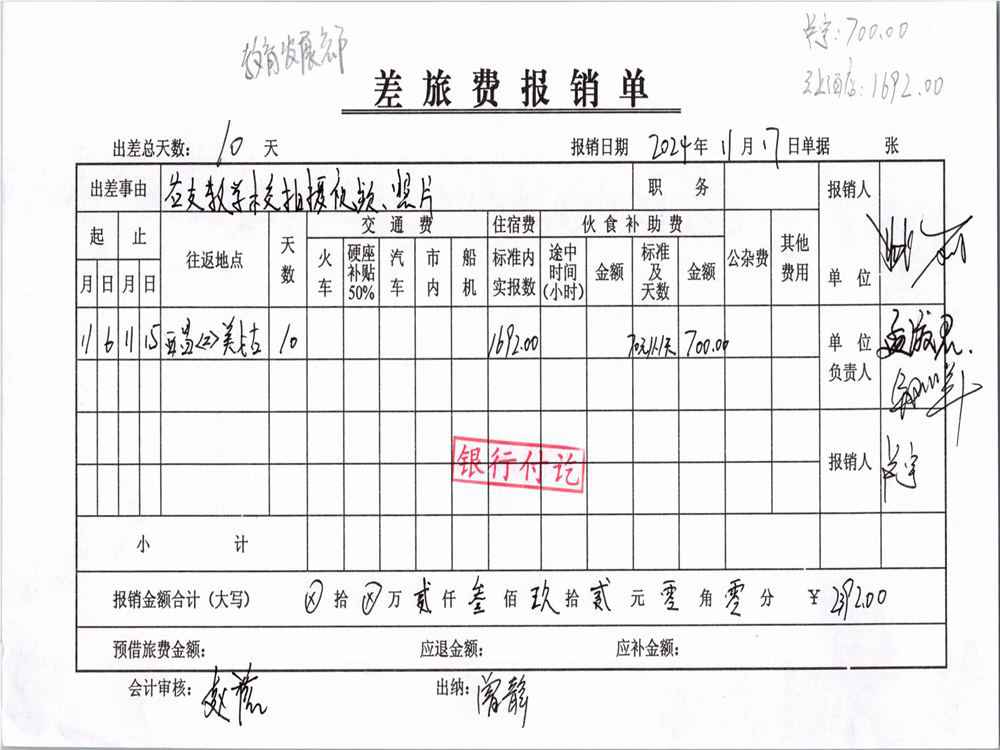 教育发展部
700.00
1692.00
差旅费报销单
出差总天数: 10 天 报销日期 2024年11月17日单据 张
出差事由 拍摄视频、照片 职务 报销人
起 止 往返地点 天数 交通费 住宿费 伙食补助费 公杂费 其他费用 单位
月 日 月 日 火车 硬座补贴50% 汽车 市内 船机 标准内实报数 途中时间(小时) 金额 标准及天数 金额
11 6 11 15 西昌<=>美姑 10 1692.00 700.00 单位负责人
银行付讫
报销人
小计
报销金额合计(大写) ⊗拾⊗万贰仟叁佰玖拾贰元零角零分 ¥2392.00
预借旅费金额: 应退金额: 应补金额:
会计审核: 出纳: 曾静